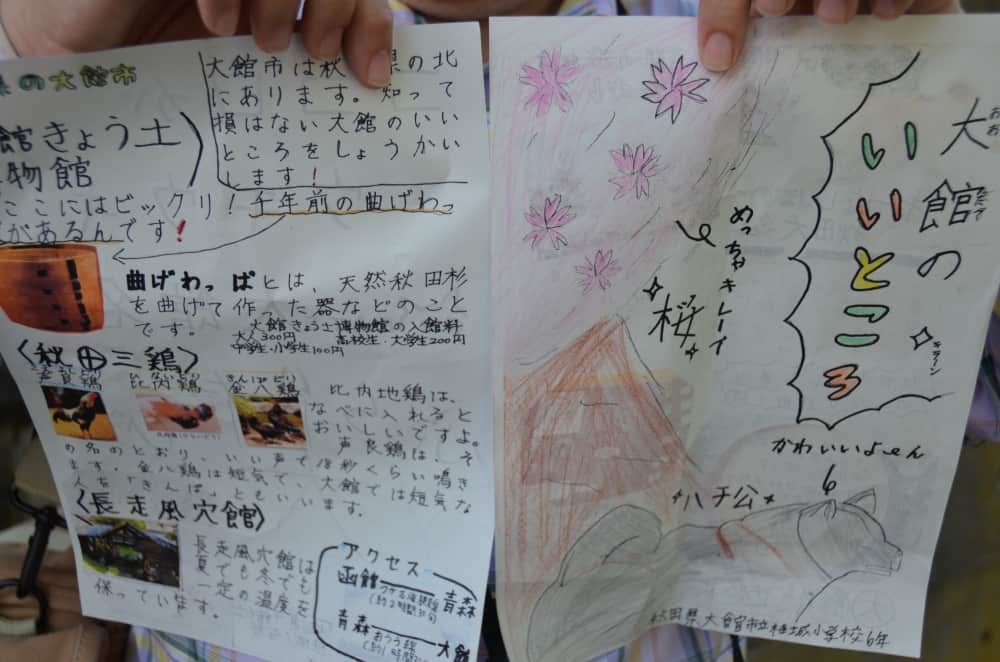 県の大館市
大館市は秋 県の北
にあります。知って
損はない大館のいい
ところをしょうかい
します!
館きょう土
物館
ここにはビックリ!千年前の曲げわっ
があるんです!
曲げわっぱとは、天然秋田杉
を曲げて作った器などのこと
です。
大館きょう土博物館の入館料
大人300円 高校生・大学生200円
中学生・小学生100円
〈秋田三鶏〉
声良鶏
比内鶏
金八鶏
比内地鶏は、
なべに入れると
おいしいですよ。
声良鶏は、そ
の名のとおり、いい声で18秒くらい鳴き
ます。金八鶏は短気で、大館では短気な
人を「きんぱ」ともいいます。
〈長走風穴館〉
長走風穴館は
夏でも冬でも
一定の温度を
保っています。
アクセス
函館 青森
青森 大館
おうう線
大館の
おお
だて
いいところ
キラーン
めっちゃキレーイ
桜
かわいいよーん
ハチ公
秋田県大館市立桂城小学校6年